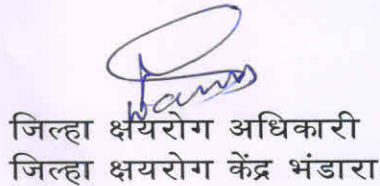 जिल्हा क्षयरोग अधिकारी
जिल्हा क्षयरोग केंद्र भंडारा